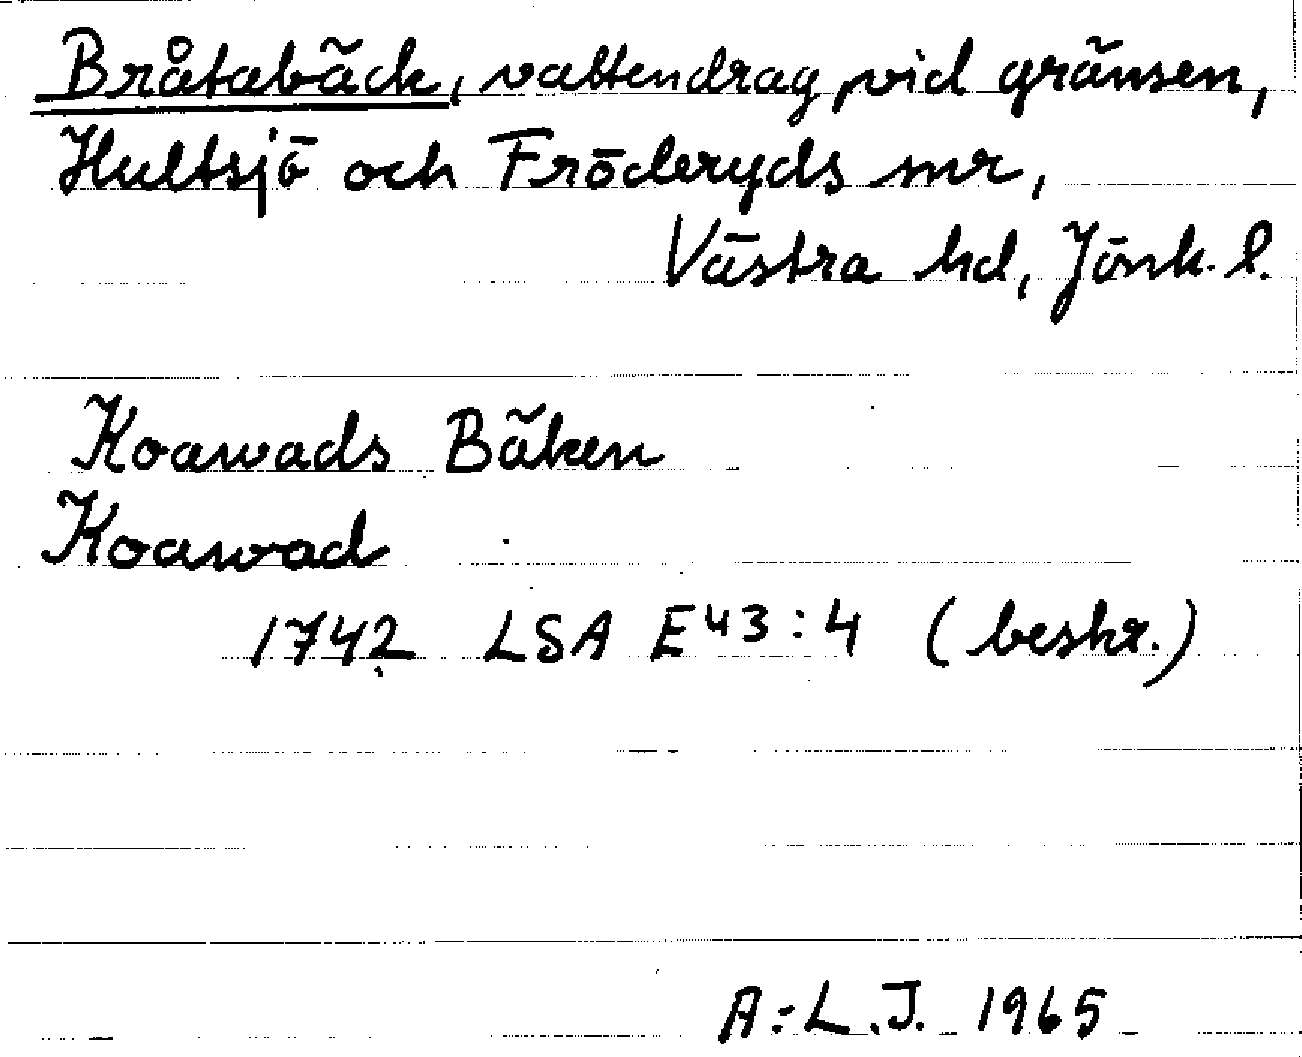 Bråtabäck, vattendrag vid gränsen,
Hultsjö och Fröderyds snr,
Västra hd, Jönk. l.
Koawads Bäken
Koawad
1742 LSA E43:4 (beskr.)
A:-L.J. 1965